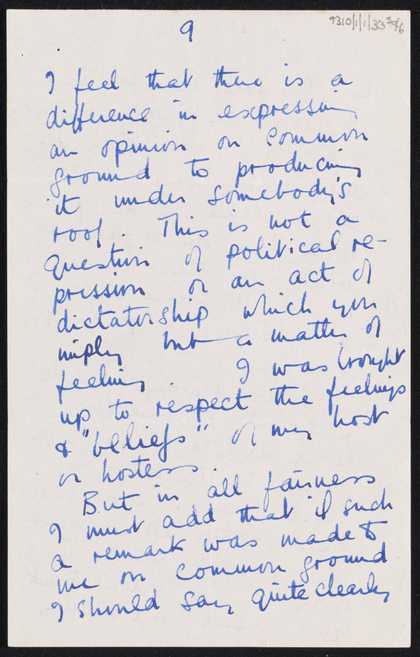 9
I feel that there is a
difference in expressing
an opinion on common
ground to producing
it under somebody's
roof. This is not a
question of political re-
pression or an act of
dictatorship which you
imply but a matter of
feeling. I was brought
up to respect the feelings
& "beliefs" of my host
or hostess.
But in all fairness
I must add that if such
a remark was made to
me on common ground
I should say quite clearly